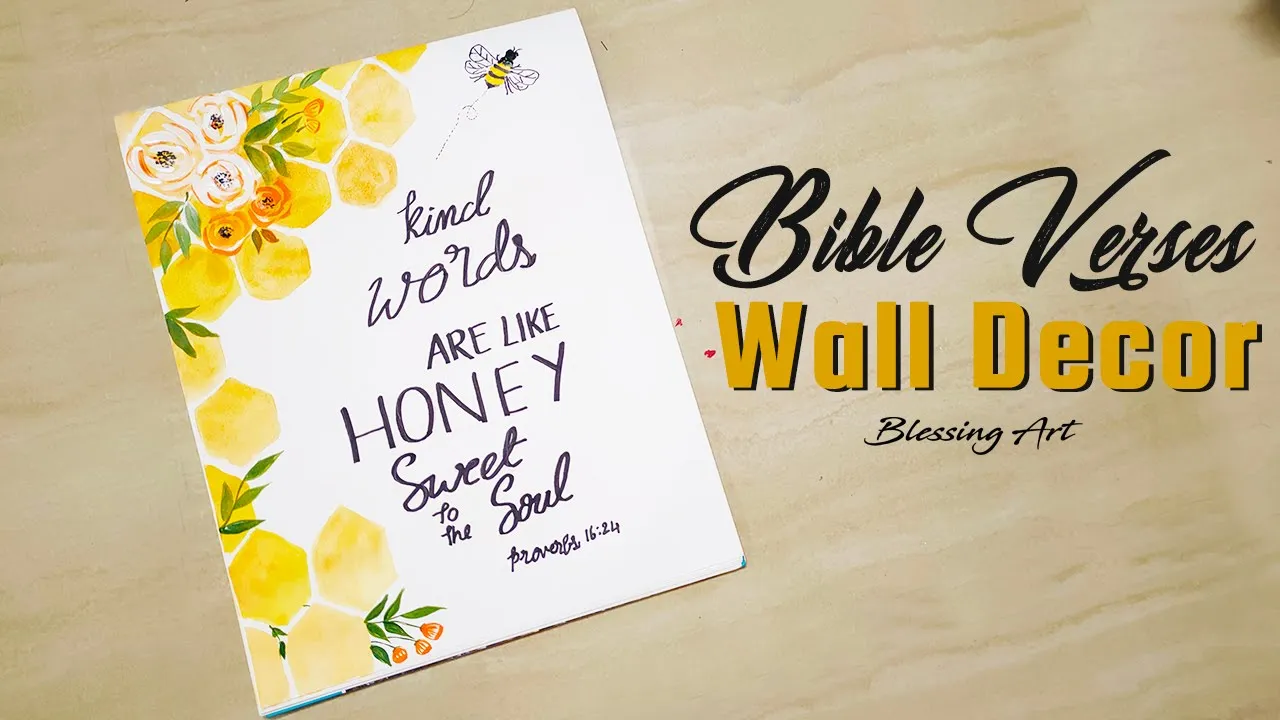 kind
words
ARE LIKE
HONEY
Sweet
to
the Soul
proverbs 16:24
Bible Verses
Wall Decor
Blessing Art